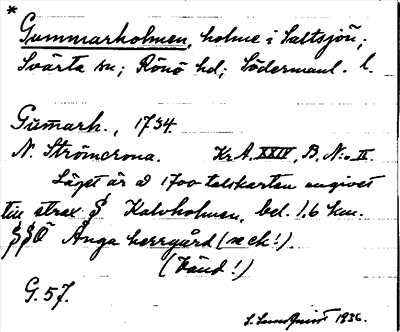 *
Gummarholmen, holme i Saltsjön;
Svärta sn; Rönö hd; Södermanl. l.
Gum̄arh., 1734.
N. Strömcrona. Kr.A. XXIV, B. N:o II.
Läget är å 1700-talskartan angivet
till strax § Kalvholmen, bel. 1,6 km.
§§Ö Ånga herrgård (se ek!).
(Vänd!)
G. 57.
S. Lundqvist 1936.